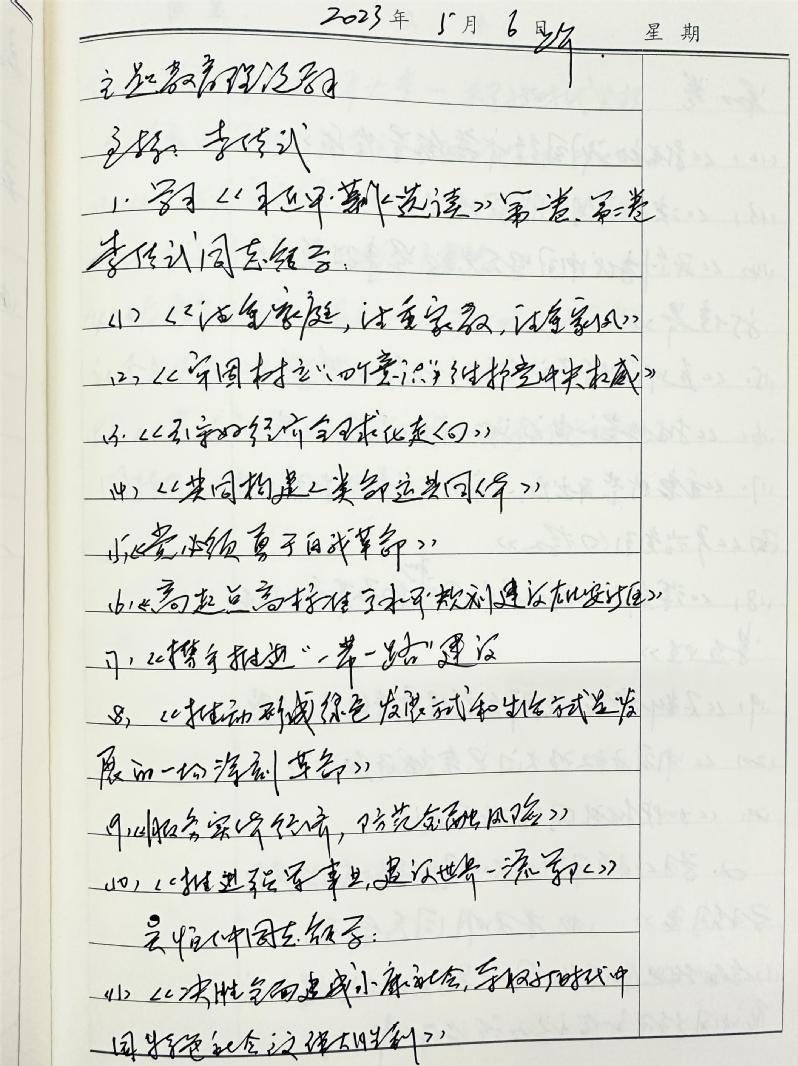 2023年 5月 6日 上午. 星期
主题教育理论学习
主持: 李传武
1. 学习《习近平著作选读》第一卷、第二卷
李传武同志领学:
(1)《注重家庭,注重家教,注重家风》
(2)《牢固树立"四个意识"维护党中央权威》
(3)《引导好经济全球化走向》
(4)《共同构建人类命运共同体》
(5)《党必须勇于自我革命》
(6)《高起点高标准高水平规划建设雄安新区》
(7)《携手推进"一带一路"建设
(8)《推动形成绿色发展方式和生活方式是发
展的一场深刻革命》
(9)《服务实体经济,防范金融风险》
(10)《推进强军事业,建设世界一流军队》
吴恒仲同志领学:
(11)《决胜全面建成小康社会,夺取新时代中
国特色社会主义伟大胜利》